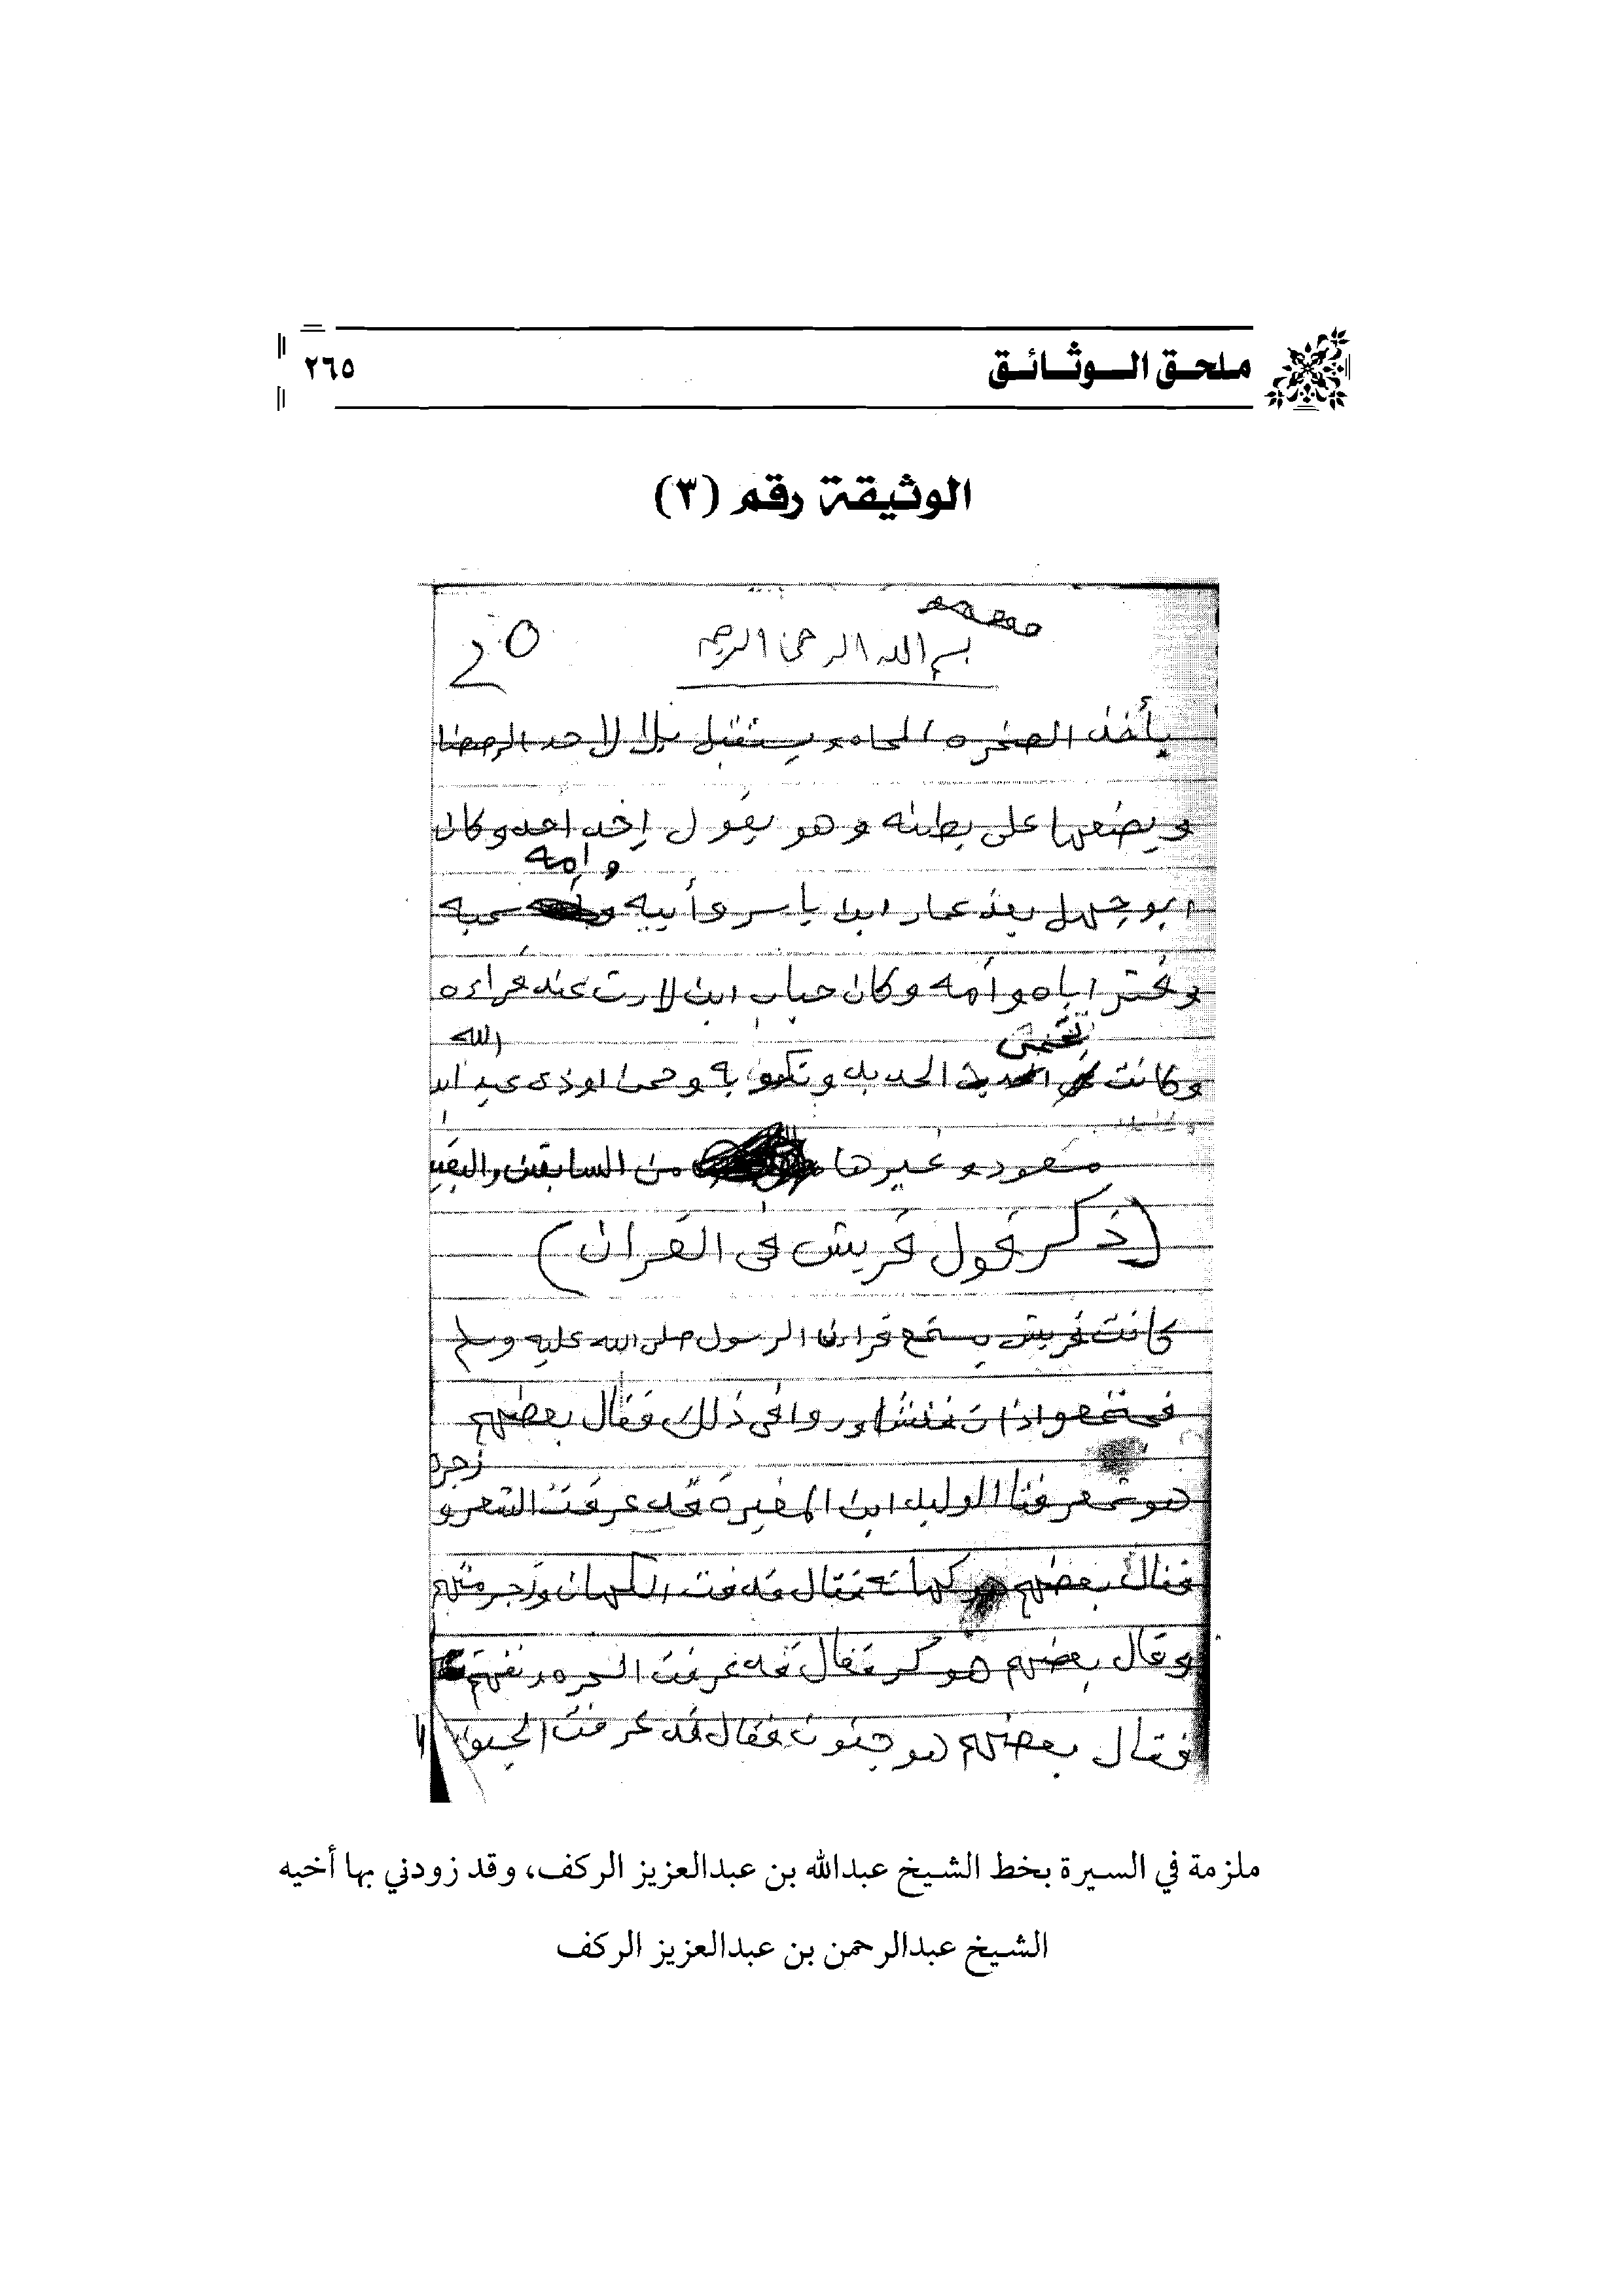 ملحق الوثائق
٢٦٥
الوثيقة رقم (٣)
بسم الله الرحمن الرحيم
يأخذ الصخره المحاه ويستقبل بلال لاحد الرمضا
ويضعها على بطنه وهو يقول احد احد وكان
وامه
ابو جهل يعذ عمار ابن ياسر وأبيه سميه
اباه وأمه وكان خباب ابن لارت عند قراءه
الله
وكانت تحمى الحديد وتكويه اوذى عبد
وغيرها من السابقين
(ذكر قول قريش في القران)
كانت قريش يستمع قرائن الرسول صلى الله عليه وسلم
ذات فتشاوروا في ذلك فقال بعضهم
زجره
هو شعر فقال الوليد ابن المغيره قد عرفت الشعر و
فقال بعضهم هو كهانة فقال قد عرفت الكهان وزجر مثلهم
وقال بعضهم هو سحر فقال قد عرفت السحره
فقال بعضهم هو جنون فقال قد عرفت الجنون
ملزمة في السيرة بخط الشيخ عبدالله بن عبدالعزيز الركف، وقد زودني بها أخيه
الشيخ عبدالرحمن بن عبدالعزيز الركف